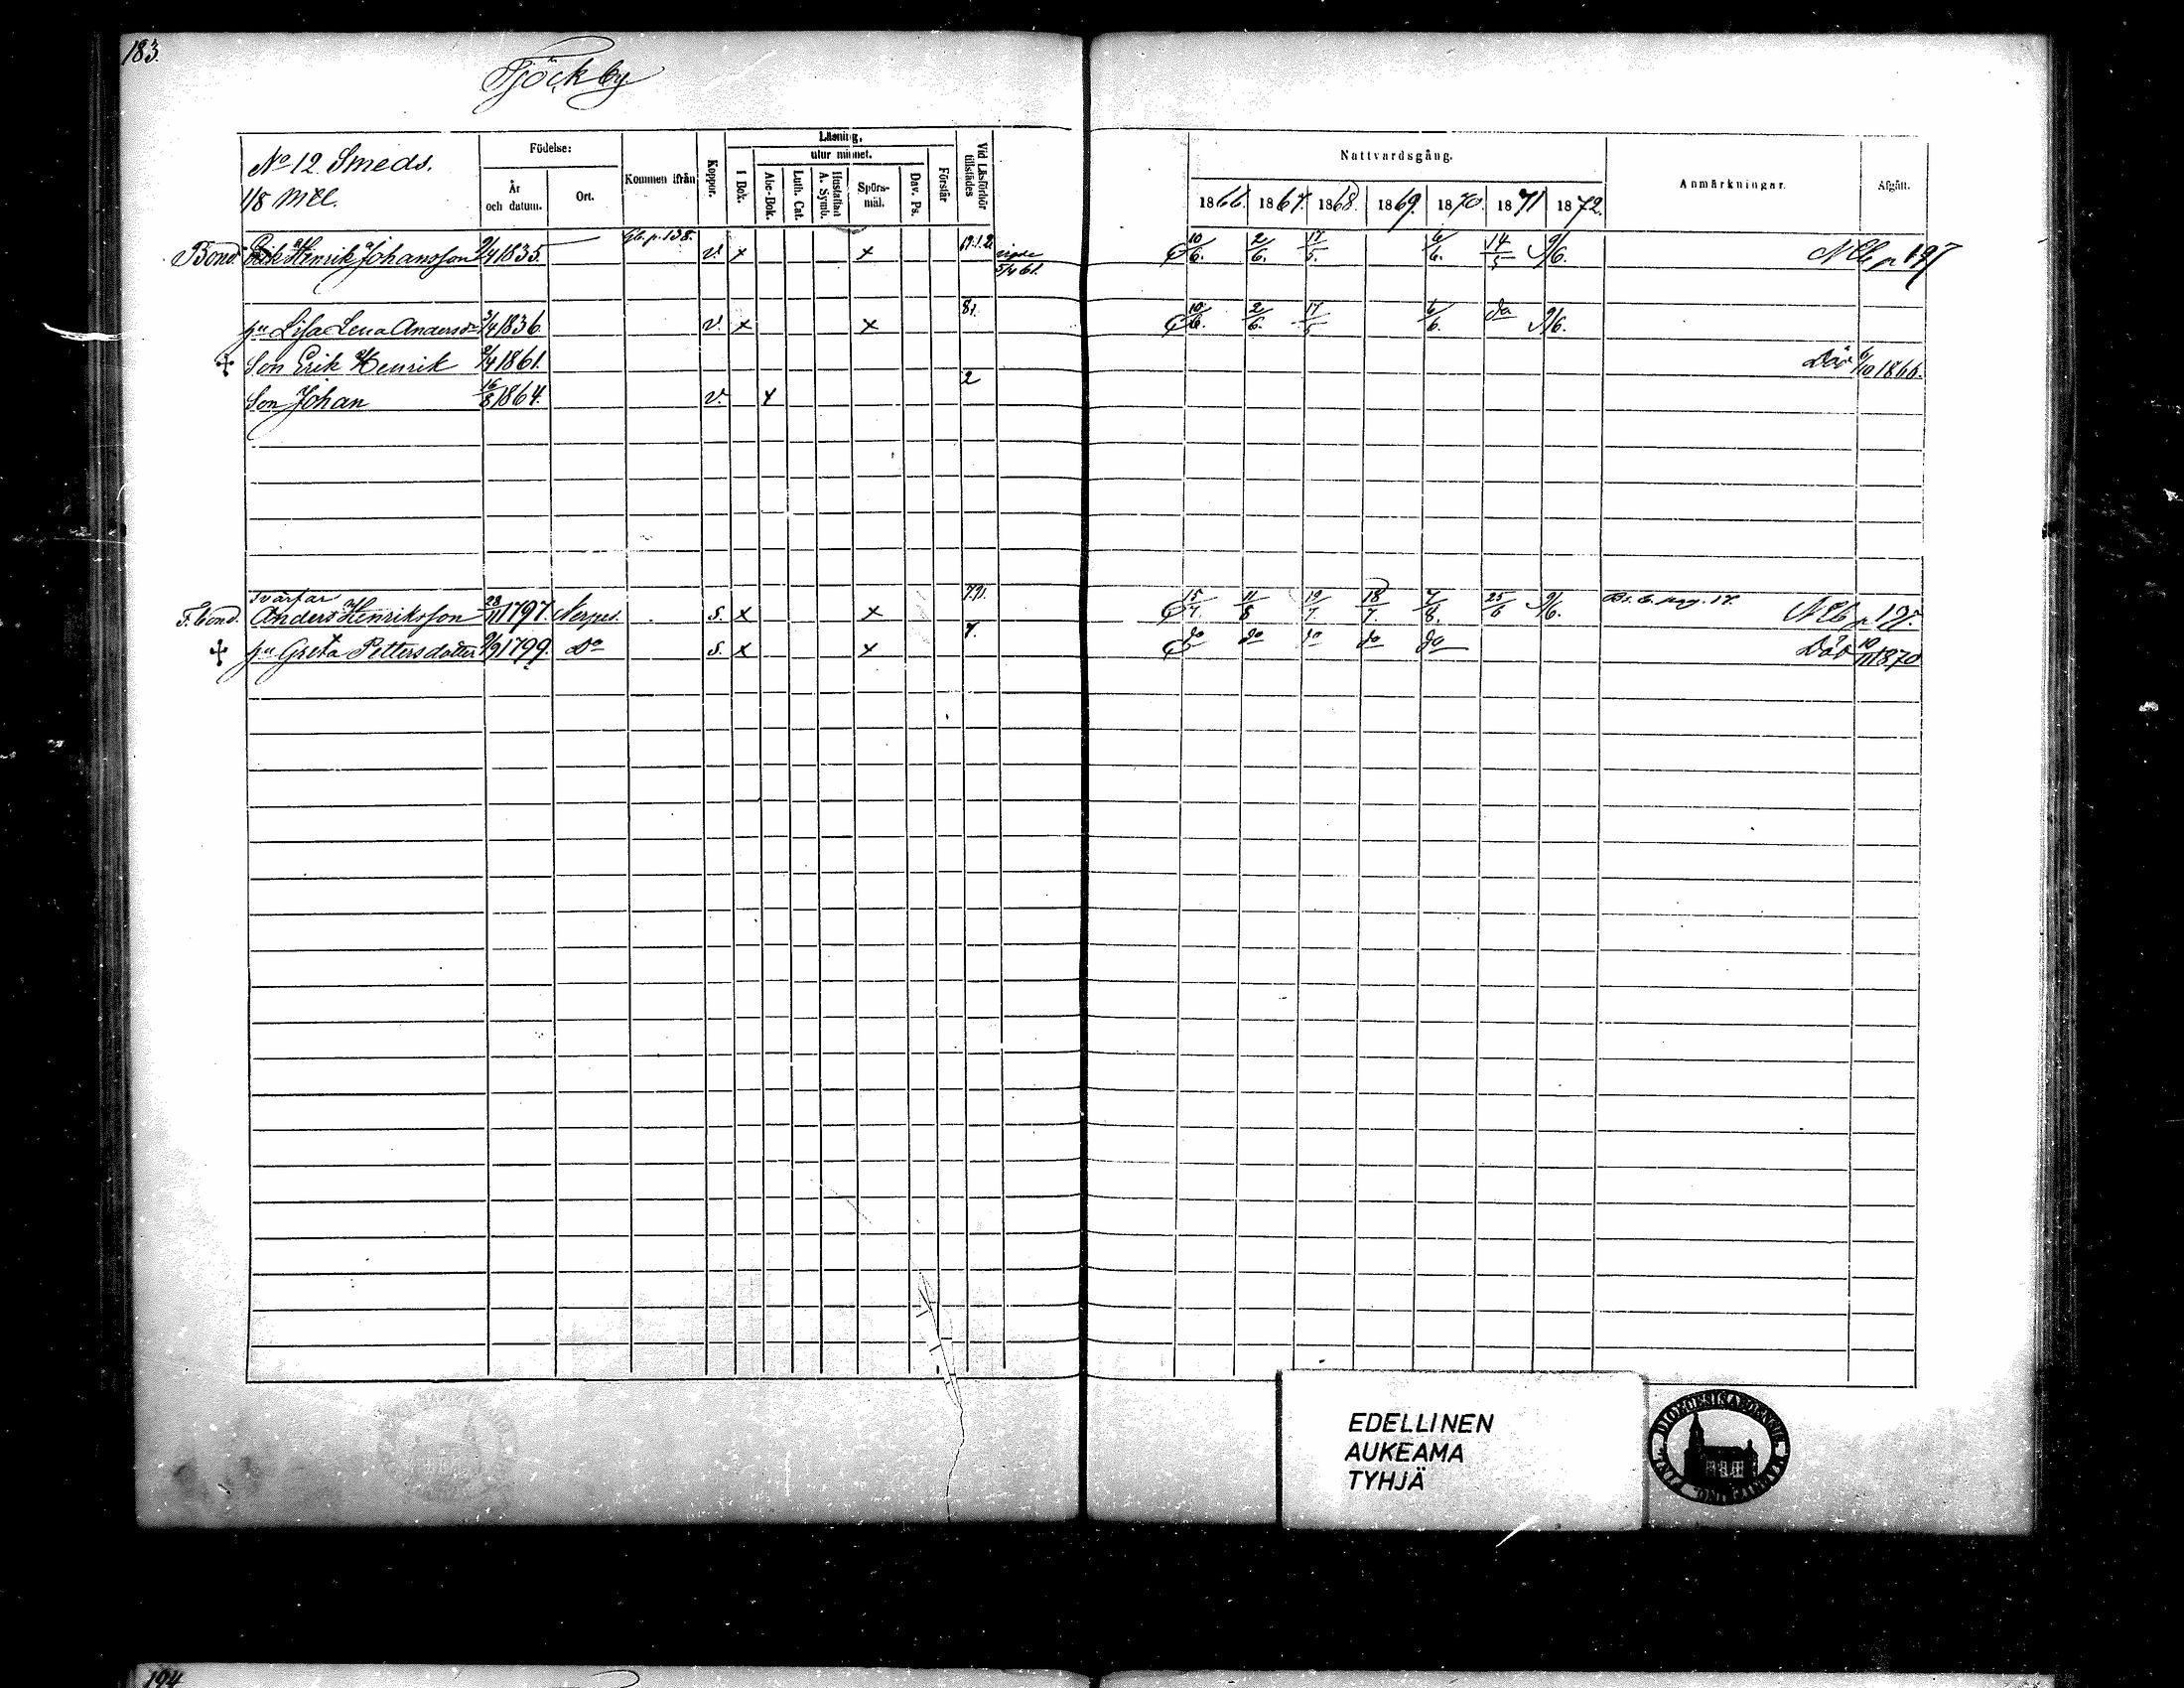 183.
Tjöck by
No 12 Smeds.
1/8 Mtl.
Födelse:
År och datum.
Ort.
Kommen ifrån
Koppor.
Läsning.
utur minnet.
I Bok.
Abc-Bok.
Luth. Cat.
Hustaflan A. Symb.
Spörs-mål.
Dav. Ps.
Förstår
Vid Läsförhör tillstädes
Nattvardsgång.
1866. 1867. 1868. 1869. 1870. 1871 1872.
Anmärkningar.
Afgått.
Bond. Erik Henrik Johansson 1835. p. 138. v. x x 5/4 61. 10/6. 2/6. 17/5. 6/6. 14/5 9/6. p 197
hu Lisa Lena Andersdr 3/4 1836. v. x x 81. 10/6. 2/6. 17/5 6/6. do 9/6.
Son Erik Henrik 2/4 1861. Död 6/10 1866.
Son Johan 16/8 1864. v. x 2
Svärfar
F. bond. Anders Henriksson 28/11 1797. Nerpes. s. x x 15/7 11/8 19/7. 18/7. 7/8. 25/6 9/6. pag. 17.
hu Greta Pettersdotter 1799. Do s. x x 7. do do do do do Död 10/11 1870
EDELLINEN
AUKEAMA
TYHJÄ
194